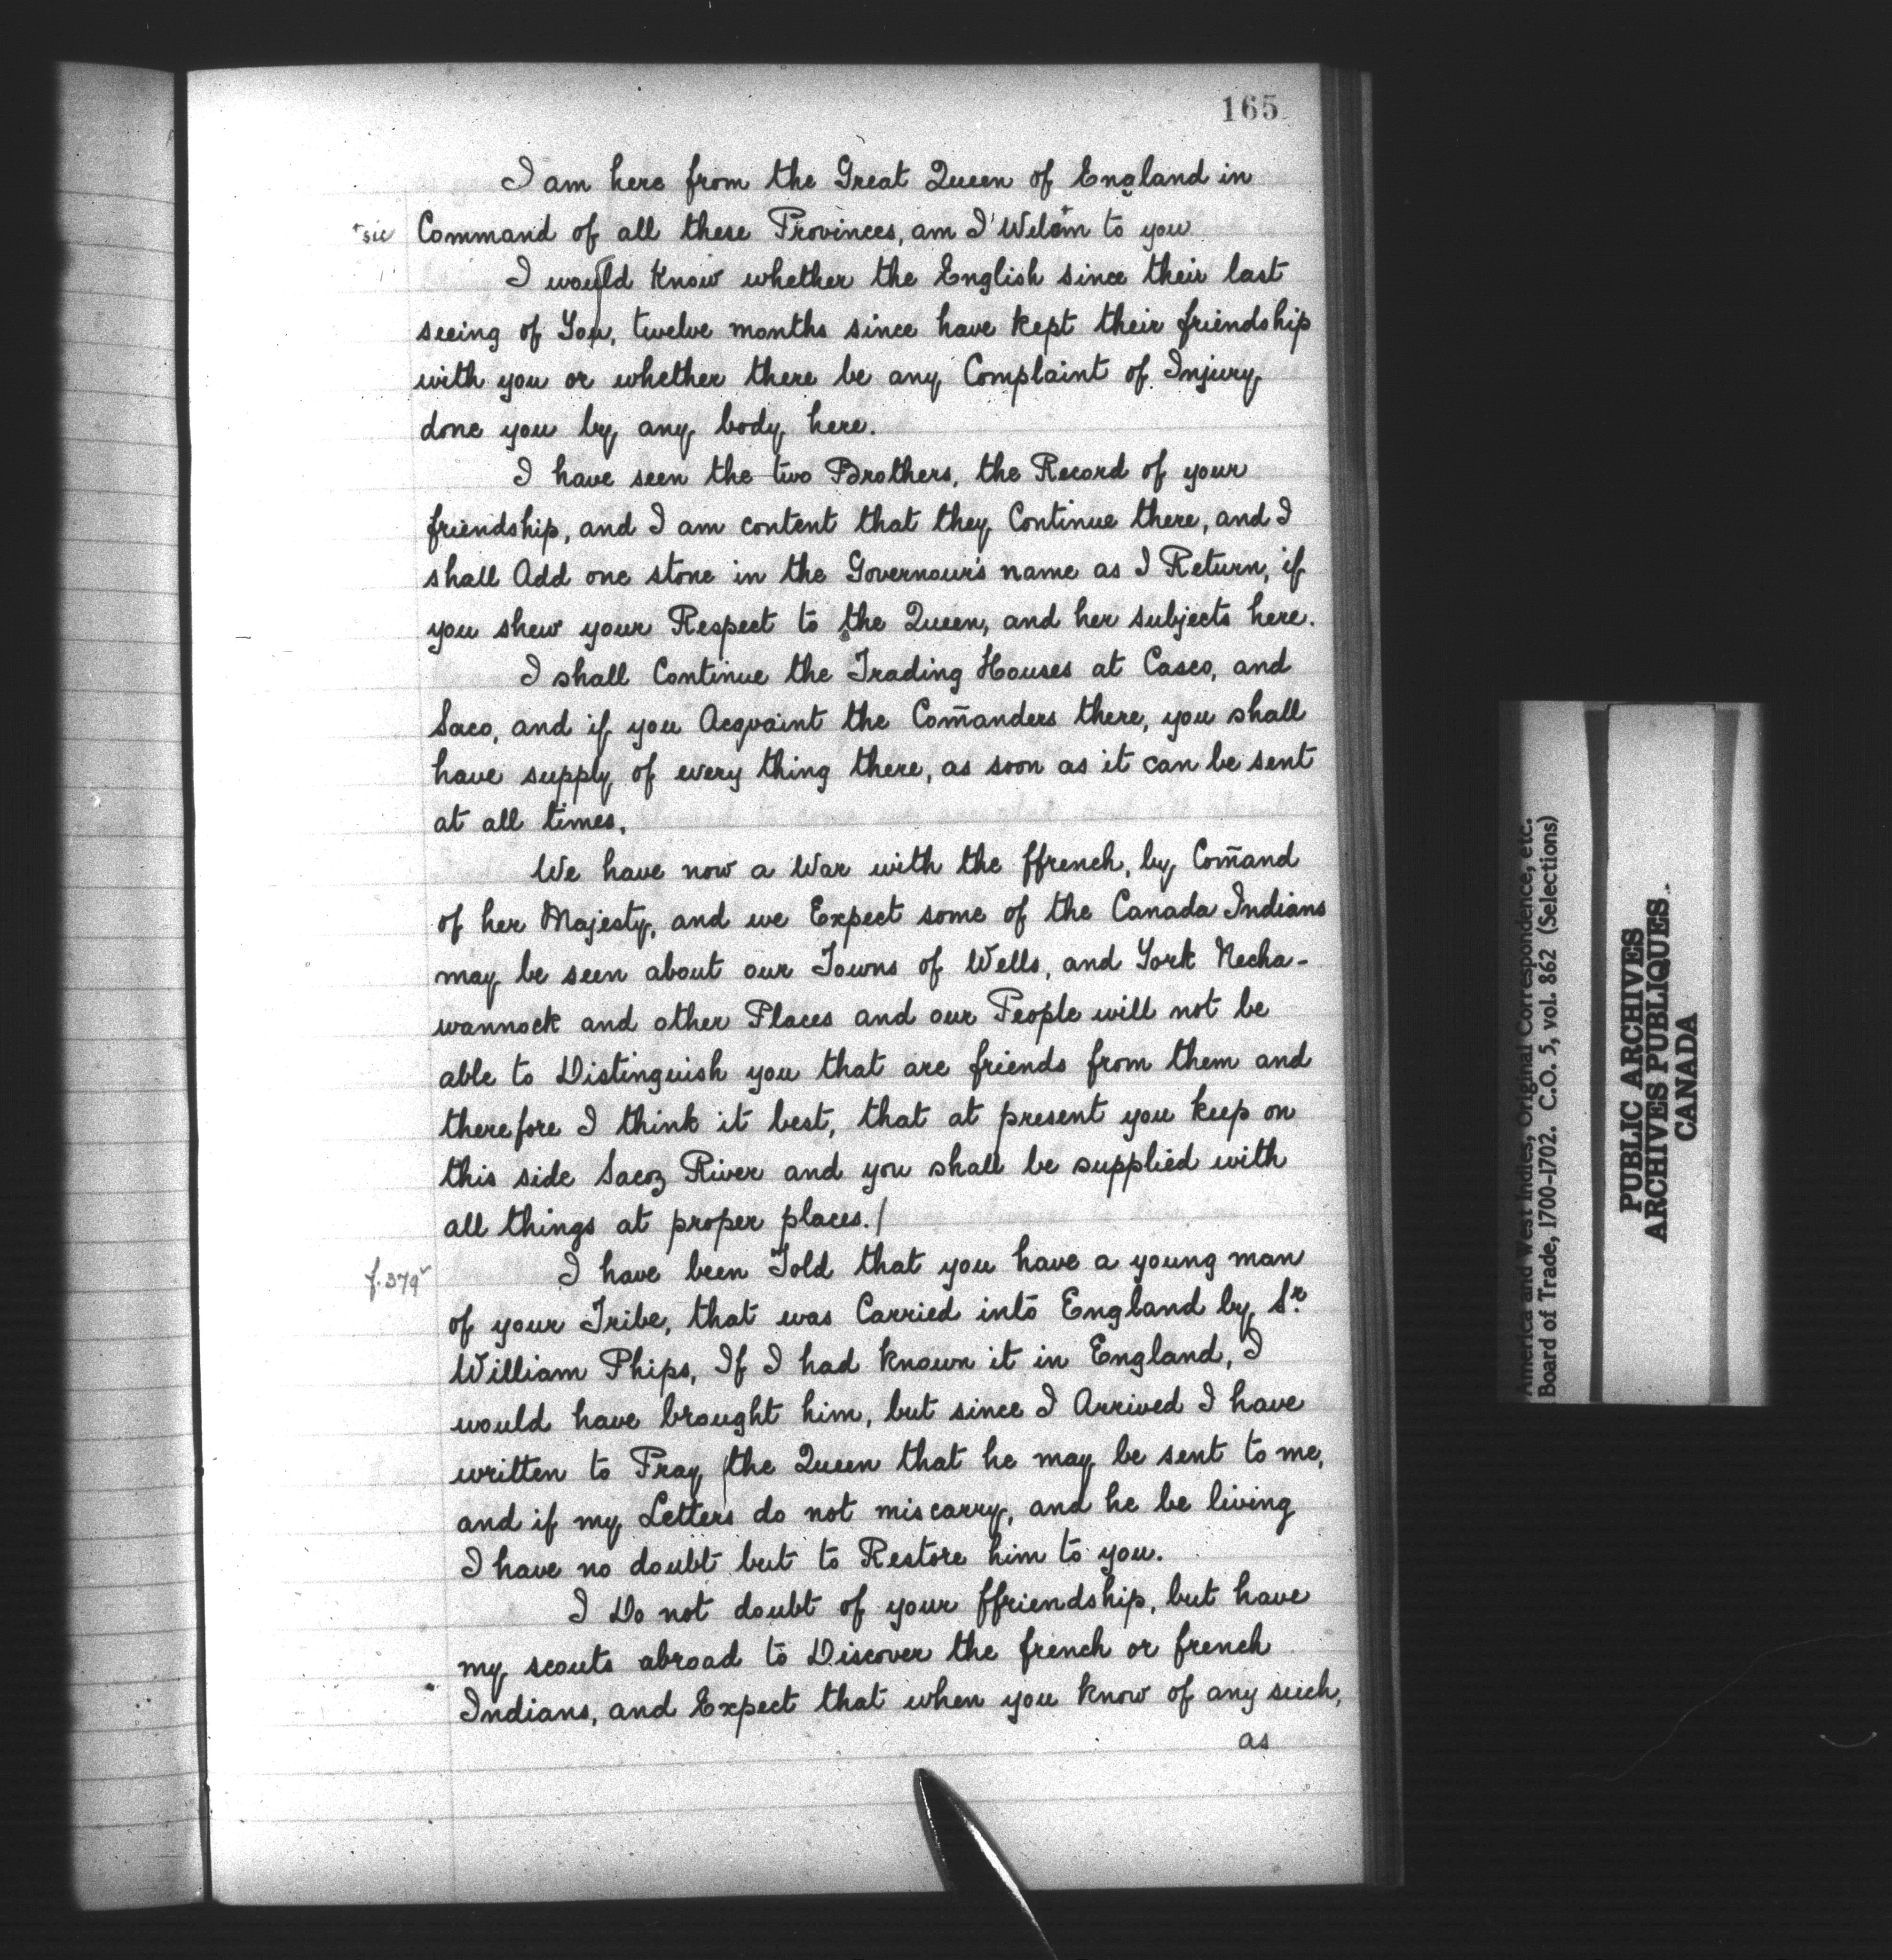 165
I am here from the Great Queen of England in
+sic Command of all these Provinces, am I Welom+ to you
I would Know whether the English since their last
seeing of You, twelve months since have kept their friendship
with you or whether there be any Complaint of Injury
done you by any body here.
I have seen the two Brothers, the Record of your
friendship, and I am content that they Continue there, and I
shall Add one stone in the Governour's name as I Return, if
you shew your Respect to the Queen, and her subjects here.
I shall Continue the Trading Houses at Casco, and
Saco, and if you Acqvaint the Com̃anders there, you shall
have supply of every thing there, as soon as it can be sent
at all times.
We have now a War with the ffrench, by Com̃and
of her Majesty, and we Expect some of the Canada Indians
may be seen about our Towns of Wells, and York Necha-
wannock and other Places and our People will not be
able to Distinguish you that are friends from them and
therefore I think it best, that at present you keep on
this side Saco River and you shall be supplied with
all things at proper places./
f.379v I have been Told that you have a young man
of your Tribe, that was Carried into England by Sr.
William Phips, If I had known it in England, I
would have brought him, but since I Arrived I have
written to Pray the Queen that he may be sent to me,
and if my Letters do not miscarry, and he be living
I have no doubt but to Restore him to you.
I Do not doubt of your ffriendship, but have
my scouts abroad to Discover the french or french
Indians, and Expect that when you know of any such,
as
America and West Indies, Original Correspondence, etc.
Board of Trade, 1700-1702. C.O. 5, vol. 862 (Selections)
PUBLIC ARCHIVES
ARCHIVES PUBLIQUES
CANADA